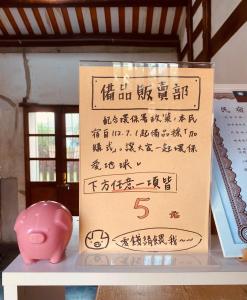 備品販賣部
配合環保署政策,本民
宿自112.7.1起備品採「加
購式」,讓大家一起環保
愛地球。
下方任意一項皆
5元
零錢請餵我~~
民宿